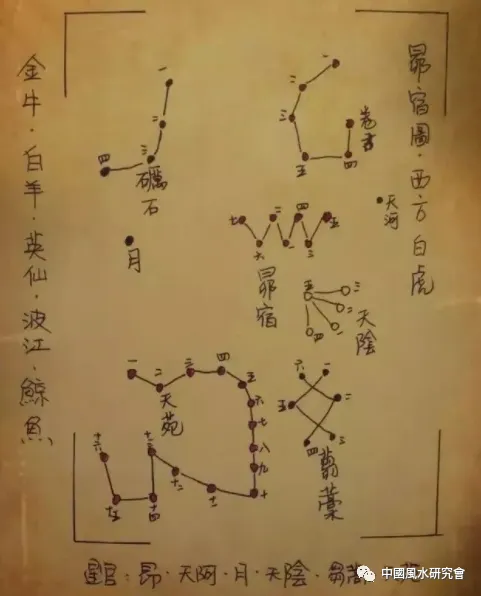 昴宿圖·西方白虎
金牛·白羊·英仙·波江·鯨魚
一
二
三
四
礪石
一
二
三
五
四
卷舌
天河
月
七
六
二
一
四
三
五
昴宿
五
三
二
一
四
天陰
六
一
五
二
四
三
藁
一
二
三
四
五
六
七
八
九
十
十一
十二
十三
十四
十五
十六
天苑
星官·昴·天阿·月·天陰·
中國風水研究會